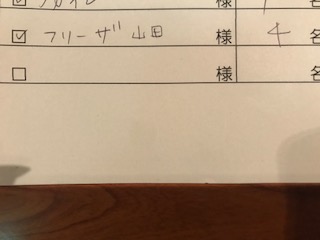 様 名
☑ フリーザ 山田 様 4 名
☐ 様 名